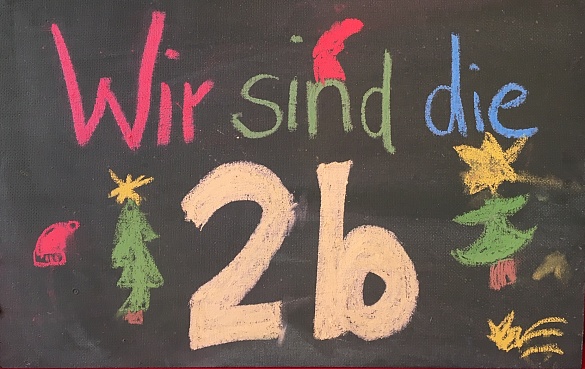 Wir sind die
2b